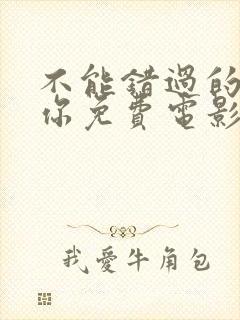 不能错過的
你免費電影
我愛牛角包